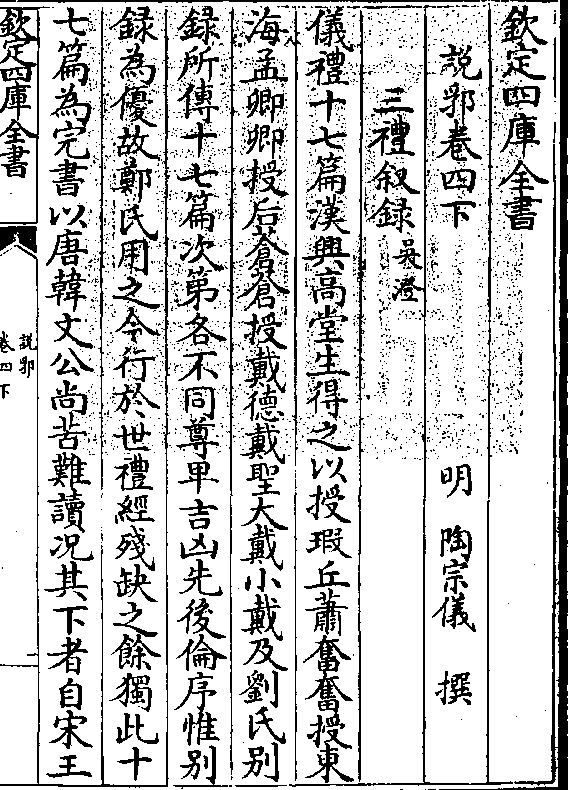 欽定四庫全書
説郛卷四下 明 陶宗儀 撰
三禮叙録 吳澄
儀禮十七篇漢興高堂生得之以授瑕丘蕭奮奮授東
海孟卿卿授后蒼蒼授戴德戴聖大戴小戴及劉氏别
録所傳十七篇次第各不同尊卑吉凶先後倫序惟别
録為優故鄭氏用之今行於世禮經殘缺之餘獨此十
七篇為完書以唐韓文公尚苦難讀况其下者自宋王
欽定四庫全書
説郛
卷四下